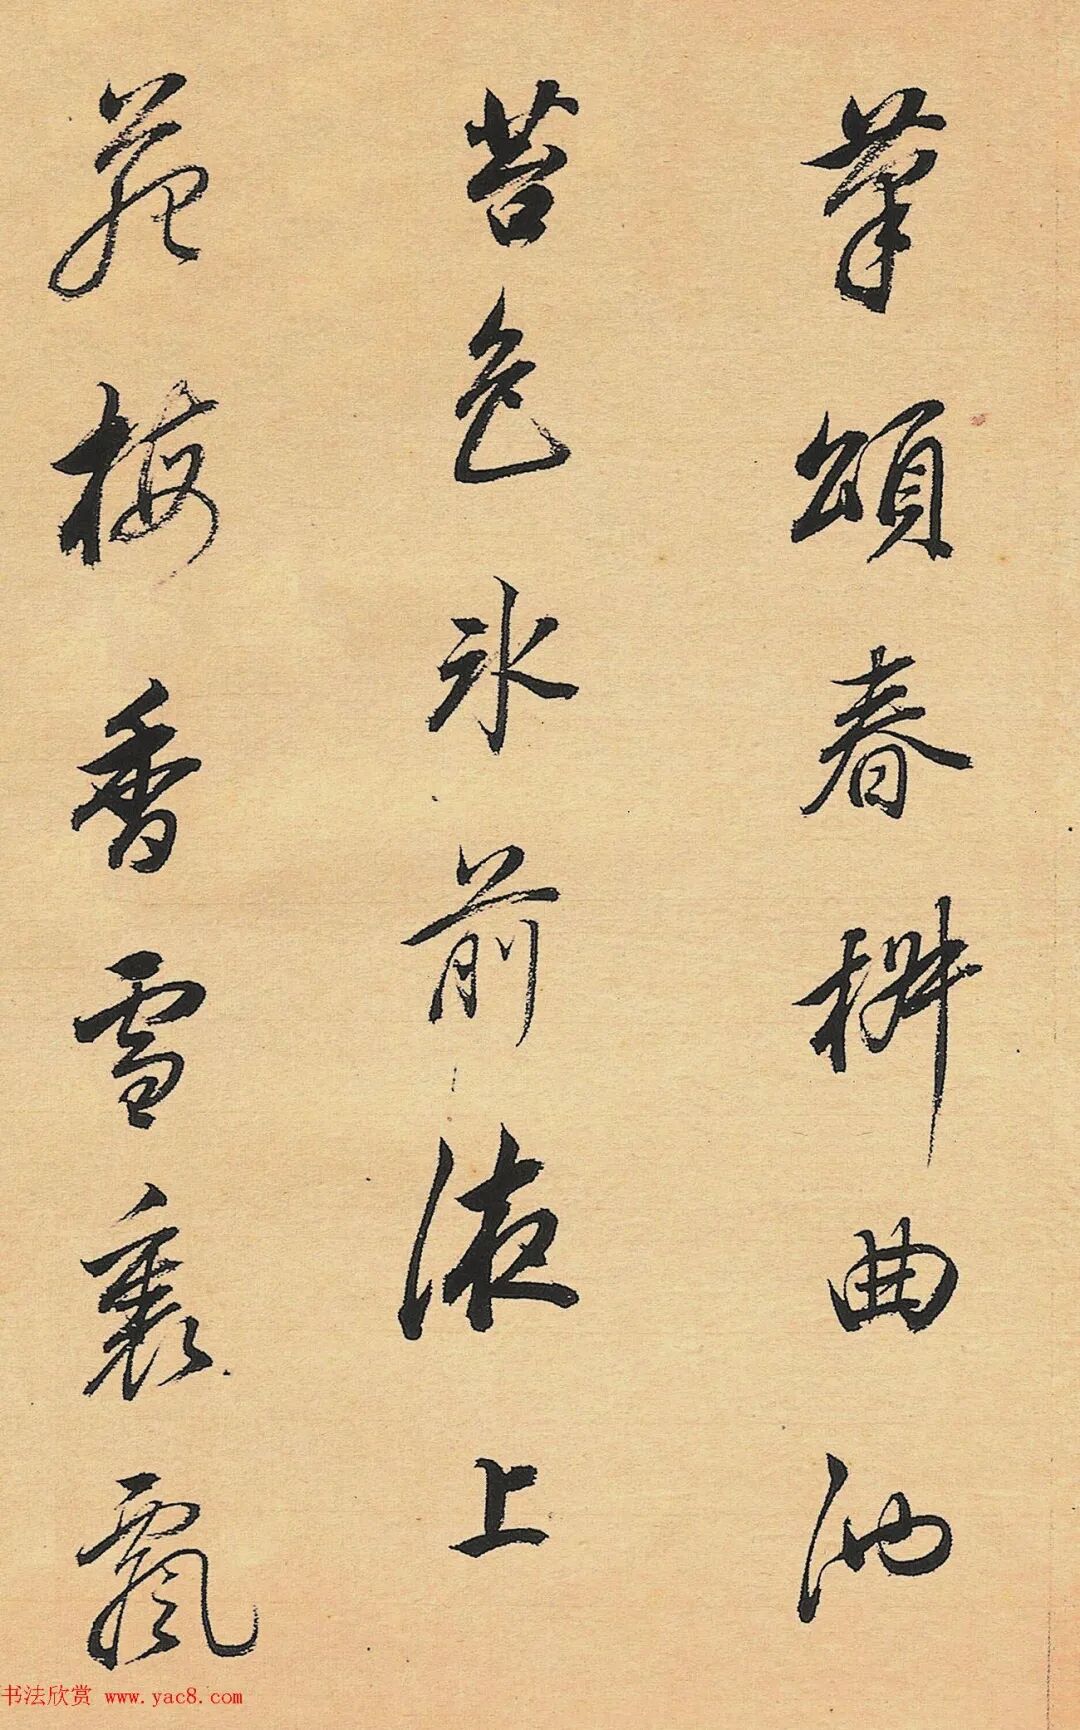 笔颂春椒曲池
苔色冰前液上
苑梅香雪里飘
书法欣赏 www.yac8.com